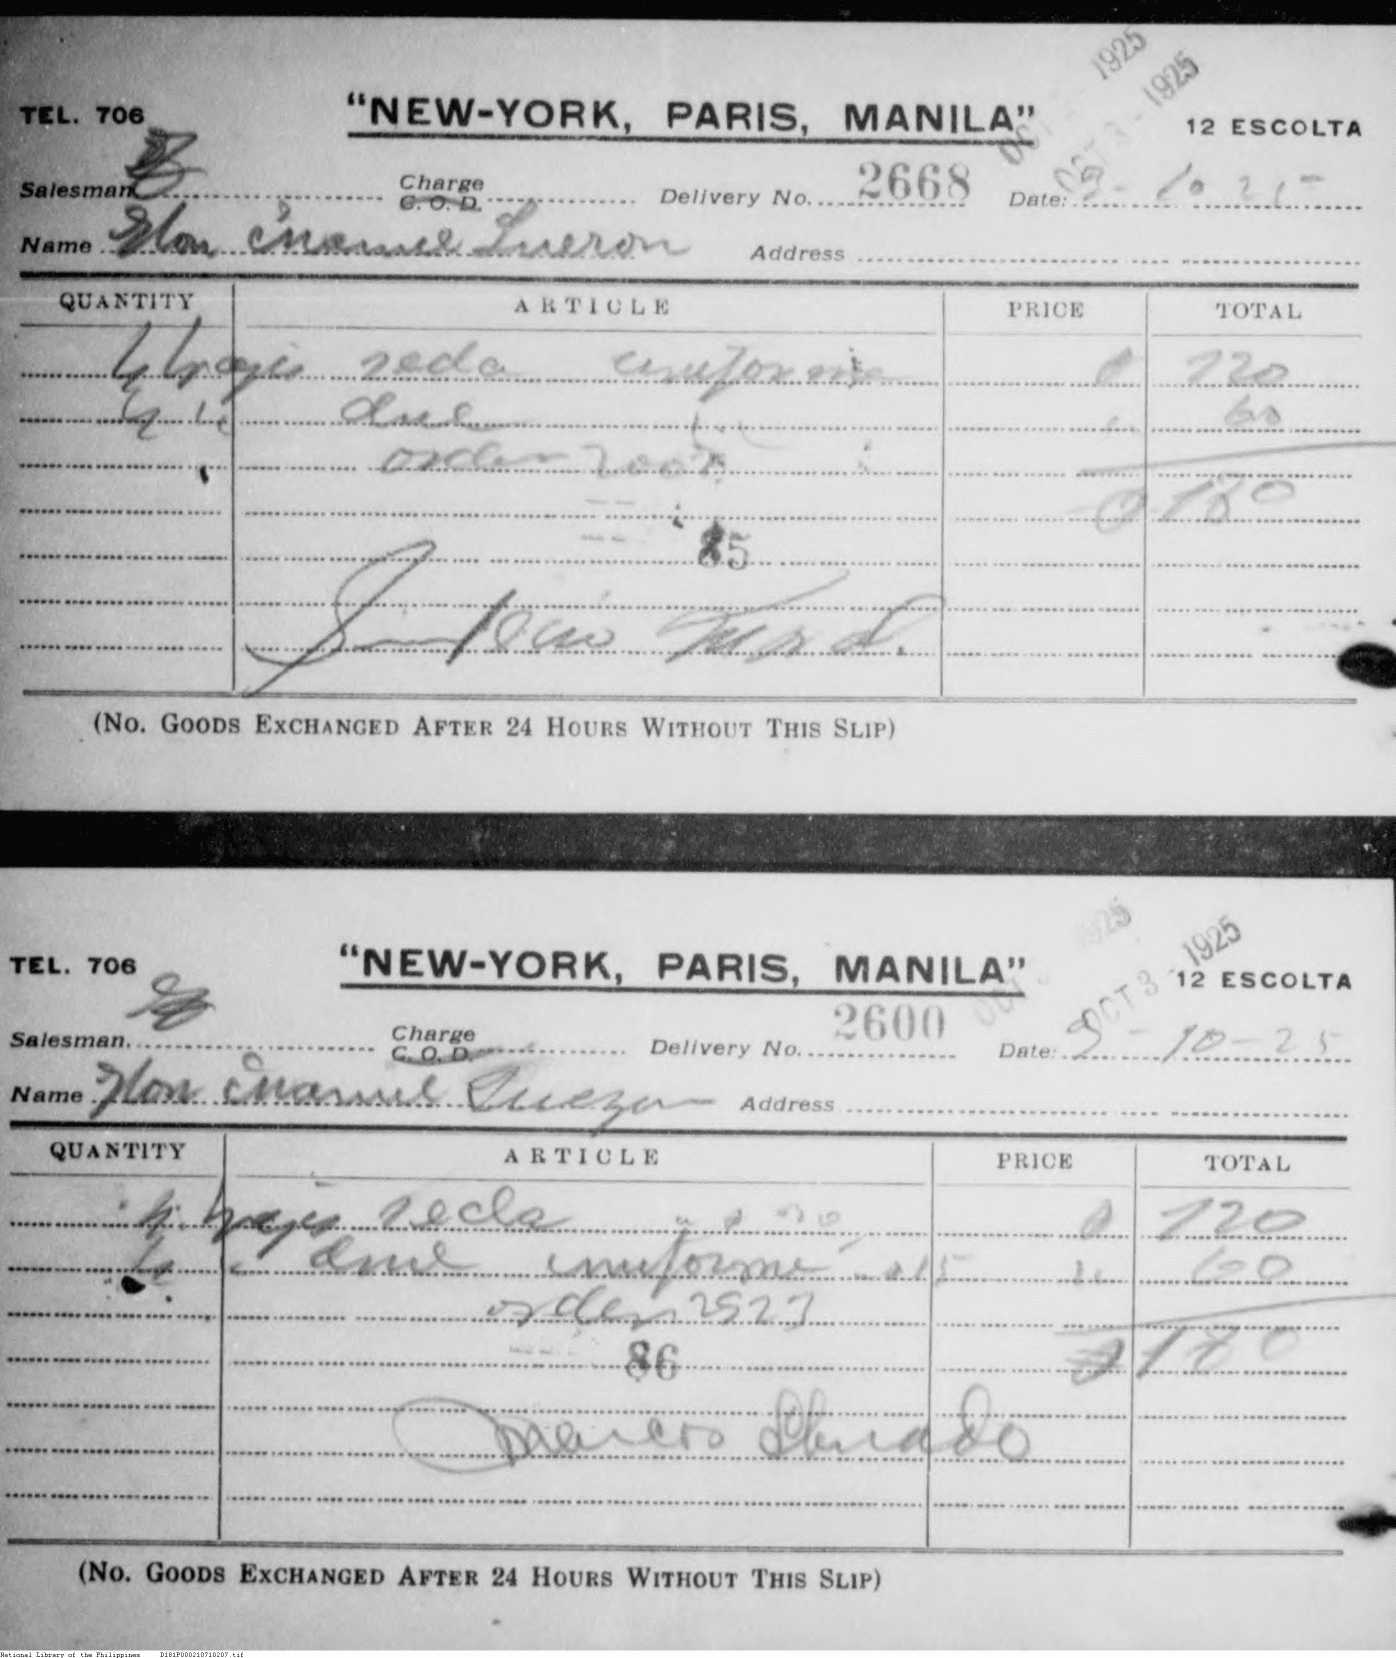 1925
1925
TEL. 706 "NEW-YORK, PARIS, MANILA" 12 ESCOLTA
Salesman Charge C. O. D. Delivery No. 2668 Date: 2-10 25
Name Hon Manuel Address
QUANTITY ARTICLE PRICE TOTAL
4 trajes seda uniforme 120
4 60
orden
180
85
(No. GOODS EXCHANGED AFTER 24 HOURS WITHOUT THIS SLIP)
1925
TEL. 706 "NEW-YORK, PARIS, MANILA" OCT 3 - 1925 12 ESCOLTA
Salesman. Charge C. O. D. Delivery No. 2600 Date: 2-10-25
Name Hon Manuel Quezon Address
QUANTITY ARTICLE PRICE TOTAL
4 trajes seda 120
4 uniforme 15 60
orden 2527
180
86
Marcos
(No. GOODS EXCHANGED AFTER 24 HOURS WITHOUT THIS SLIP)
National Library of the Philippines D181P000210710207.tif